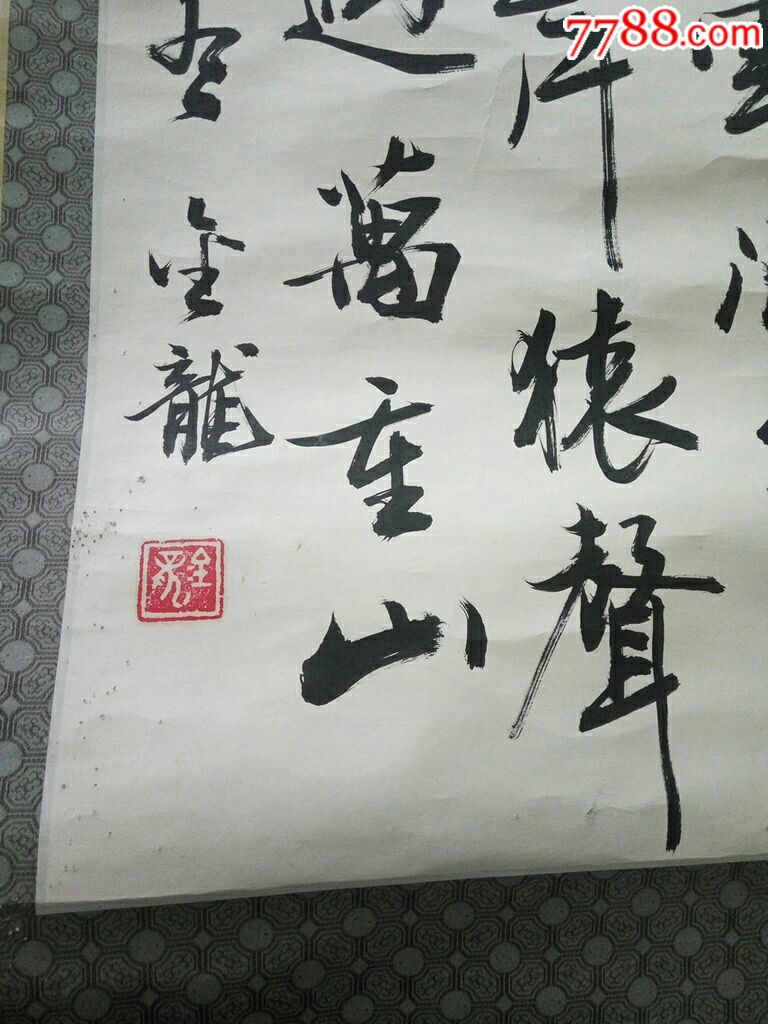 7788.com
岸猿聲
過萬重山
金龍
金龍